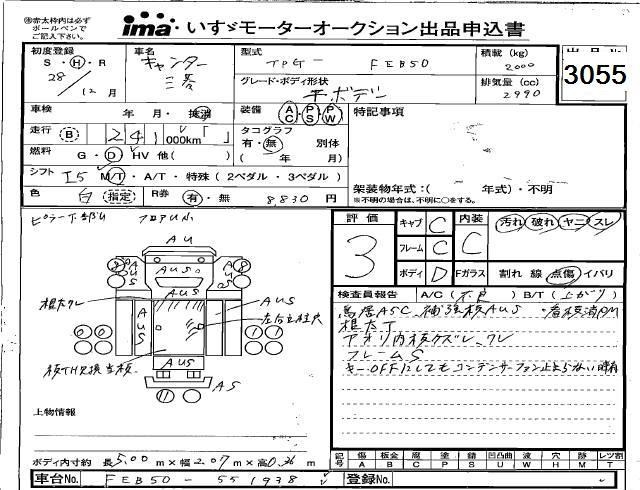 ※赤太枠内は必ず
ボールペンで
ご記入下さい。
ima いすゞモーターオークション出品申込書
初度登録
S・H・R
28
12月
車名
キャンター
三菱
型式
TPG-
FEB50
グレード・ボディ形状
平ボデー
積載(kg)
2000
排気量(cc)
2990
3055
車検
年・月・抹消
走行
B 241,000km「 」
燃料
G・D・HV 他( )
シフト I5 M/T・A/T・特殊(2ペダル・3ペダル)
色 白 指定
R券 有・無 8,830円
装備
AC・PS・PW
タコグラフ
有・無 別体
( 年 月)
特記事項
架装物年式:( 年式)・不明
※不明の場合は、不明に○をする。
AU
AUS
AUS
AUS
AUS
AUS
AS
評価
3
キャブ C
フレーム C
ボディ D
内装
C
Fガラス
汚れ 破れ ヤニ スレ
割れ 線 点傷 イバリ
検査員報告
A/C(不良) B/T(上がり)
鳥居ASC、補強板AUS
フレームS
キーOFFにしてもコンデンサーファン止まらない時有
上物情報
ボディ内寸約 長5.00m×幅2.07m×高0.36m
記号
傷 A
板金 B
腐 C
塗 P
錆 S
凹凸曲 U
波 W
穴 H
跡 M
レツ割 T
車台No. FEB50-551938
登録No.